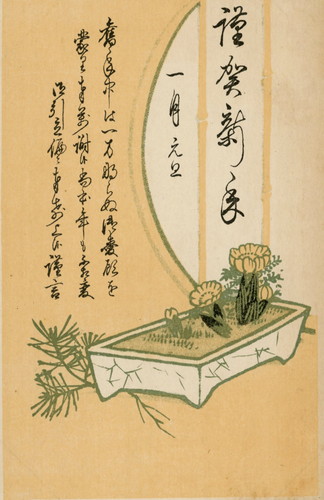 謹賀新年
一月元旦
舊年中は一方ならぬ御愛顧を
蒙り奉萬謝候尚本年も不變
御引立偏に奉希上候謹言